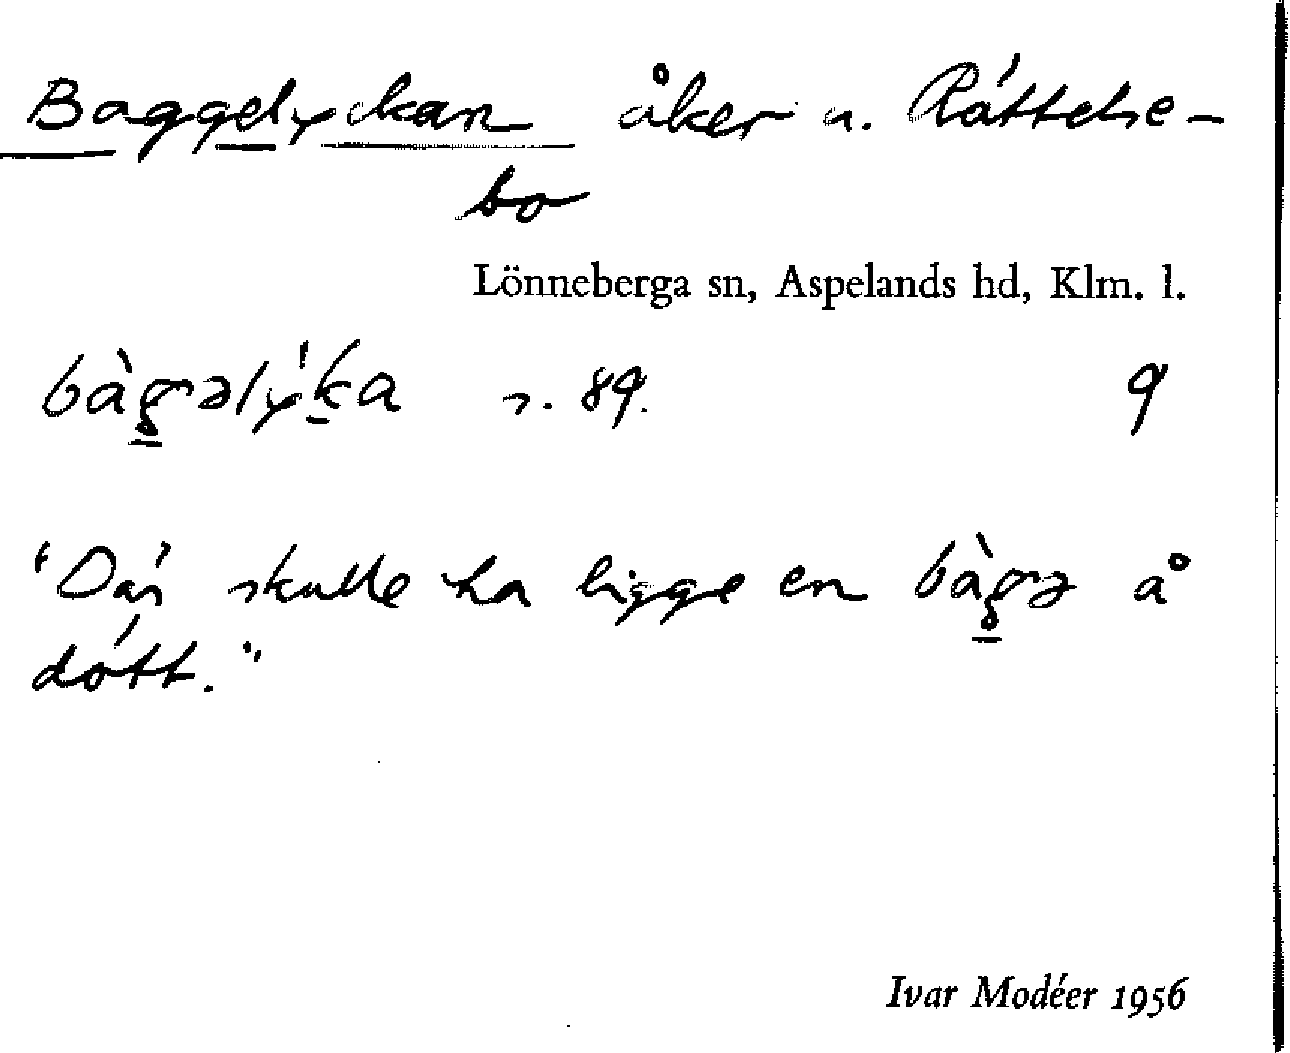 Baggelyckan åker u. Råttelse-
bo
Lönneberga sn, Aspelands hd, Klm. l.
bàgəlýka s. 89. 9
"Där skulle ha ligge en bàgə å
dótt."
Ivar Modéer 1956